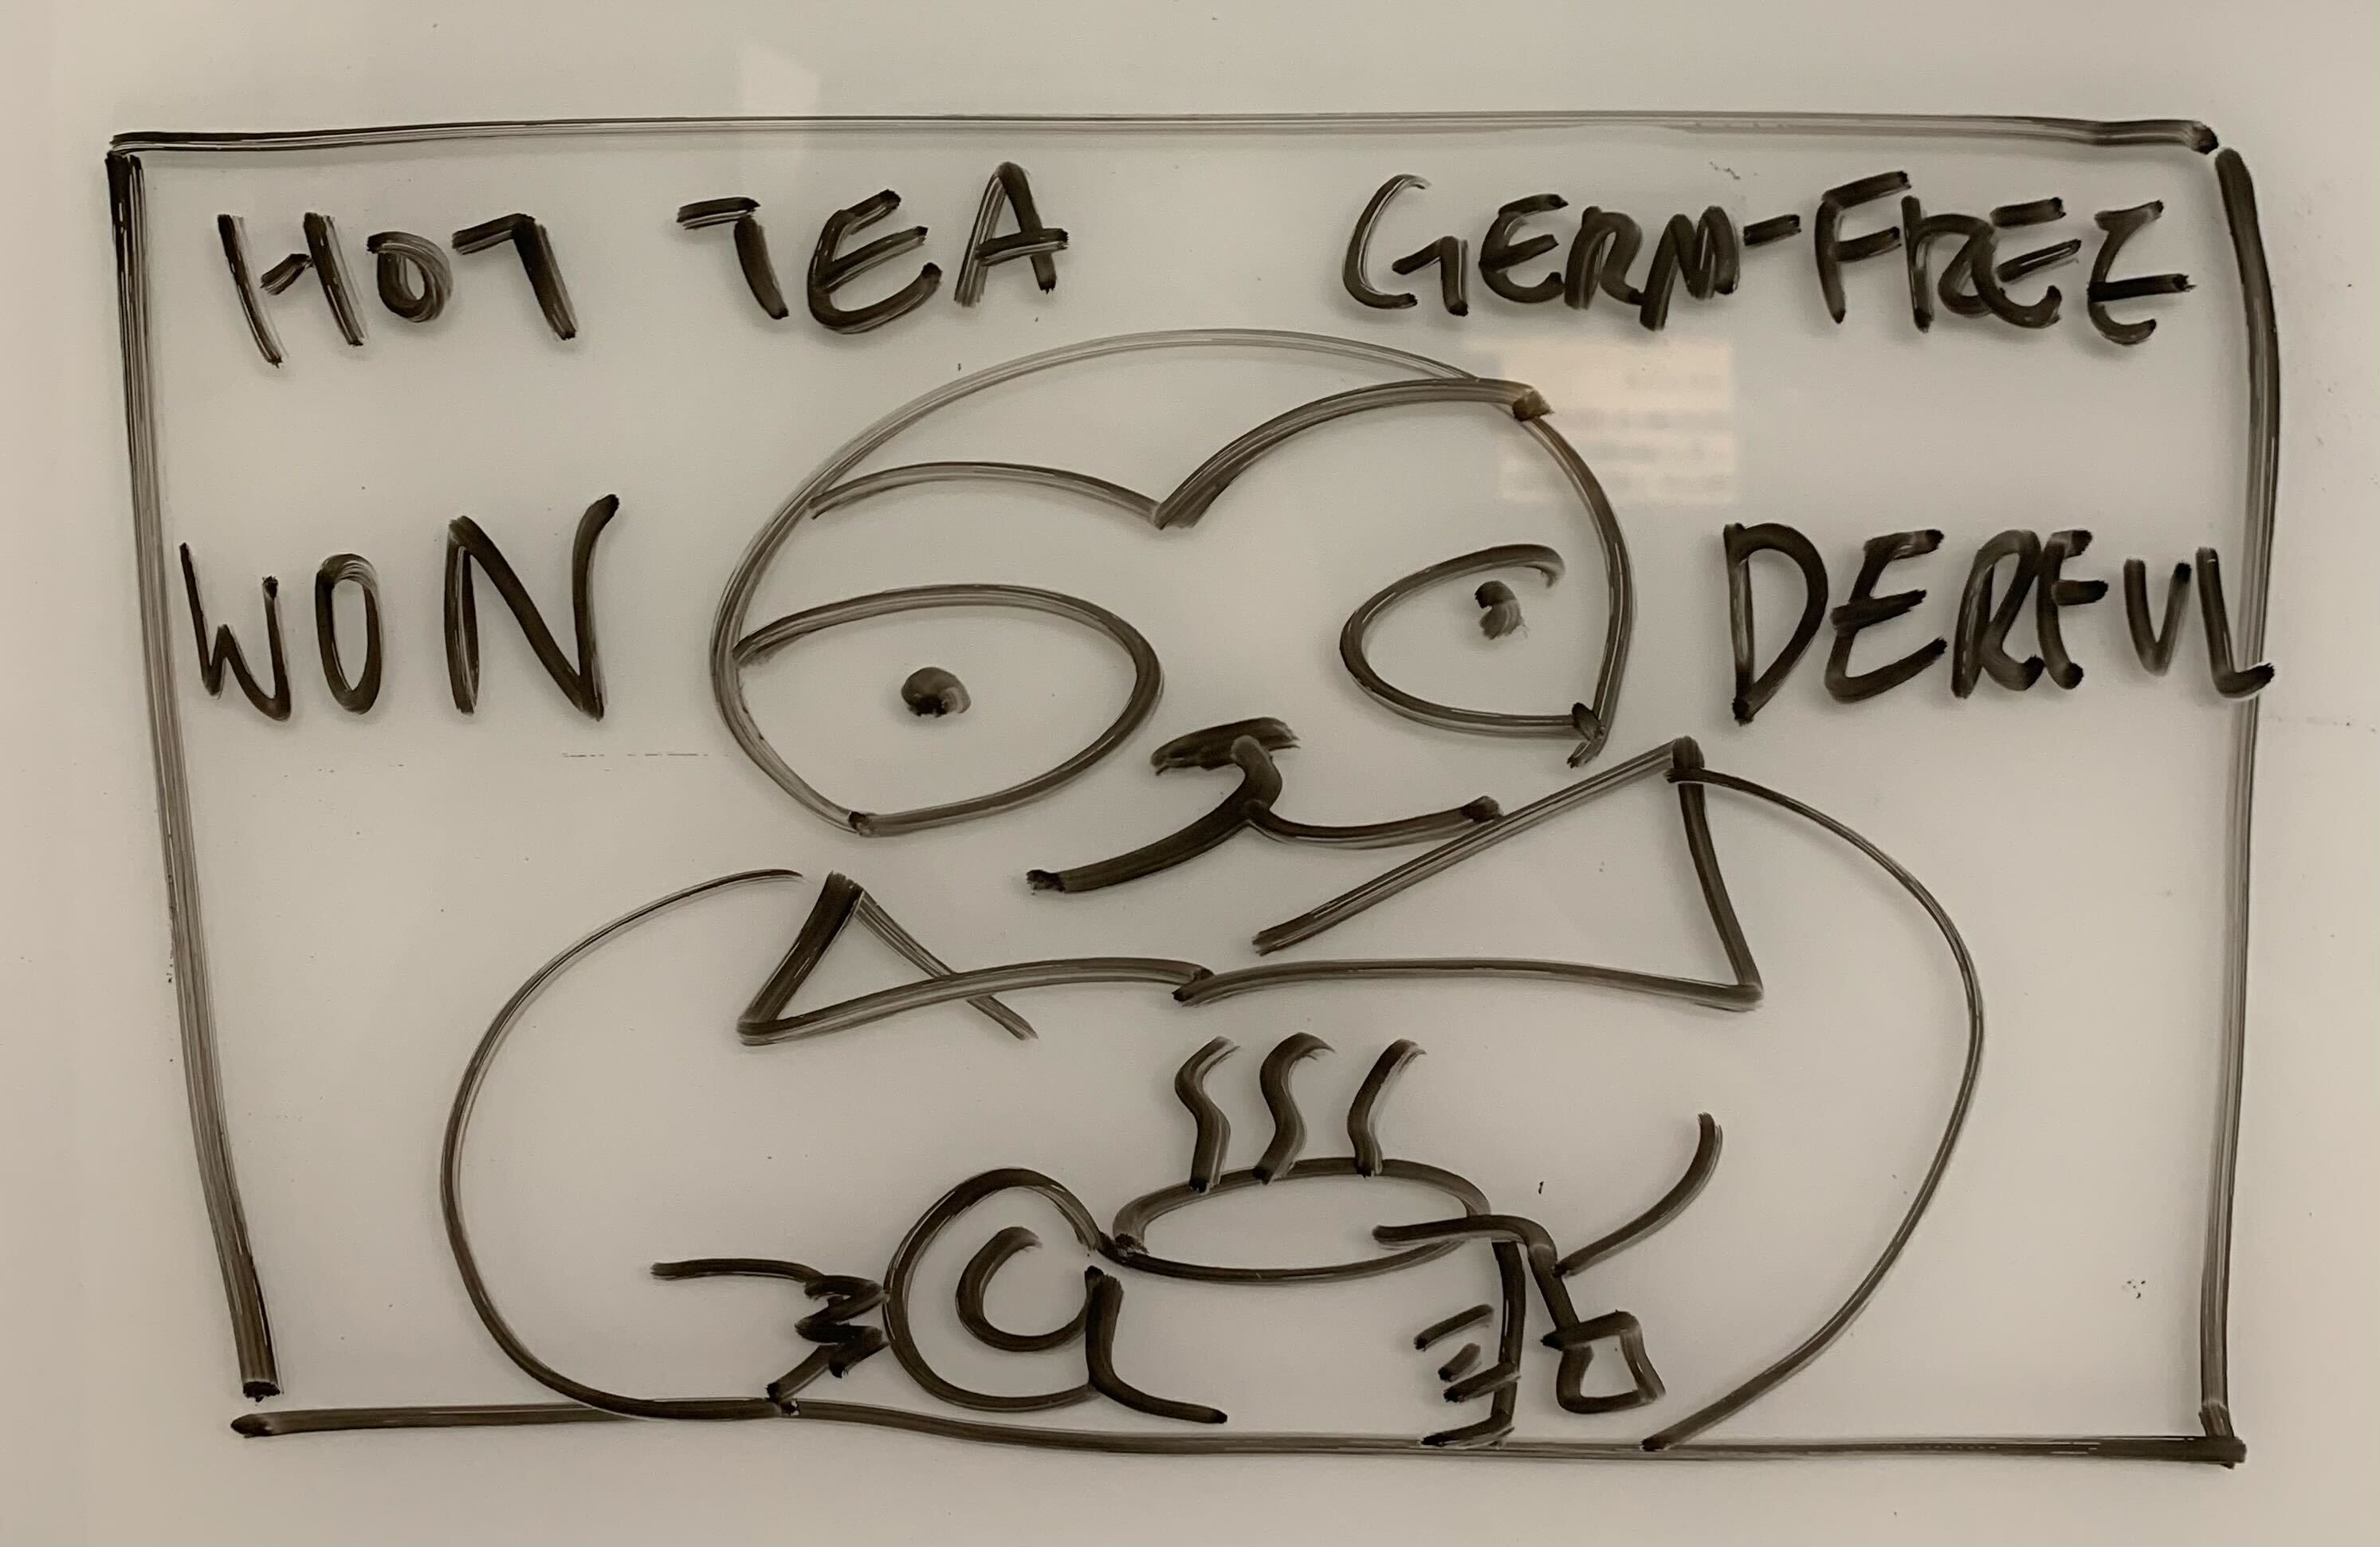 HOT TEA GERM-FREE
WON DERFUL